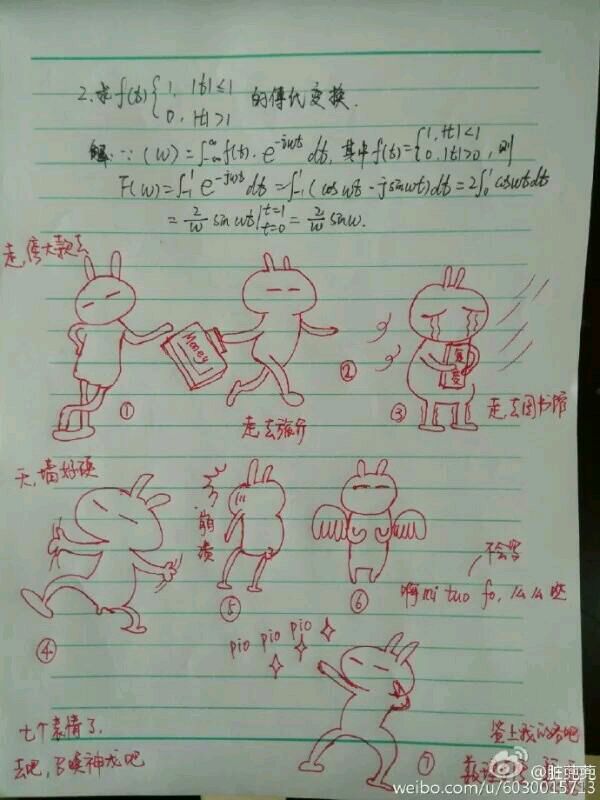 2.求f(t){1, |t|≤1
0, |t|>1 的傅氏变换.
解:∵ (w)=∫-∞^∞ f(t)·e^-jwt dt, 其中f(t)={1, |t|<1
0, |t|>0, 则
F(w)=∫-1^1 e^-jwt dt=∫-1^1(cos wt - j sin wt)dt=2∫0^1 cos wt dt
= 2/w sin wt|t=1 t=0 = 2/w sin w.
走,傍大款去
Money
①
②
走去旅行
复变
③
走,去图书馆
天,墙好硬
④
崩溃
⑤
⑥
不会写
啊mi tuo fo, 么么哒
pio pio pio
⑦
七个表情了,
去吧,召唤神龙吧
签上我的名吧
@脏莼莼
weibo.com/u/6030015713